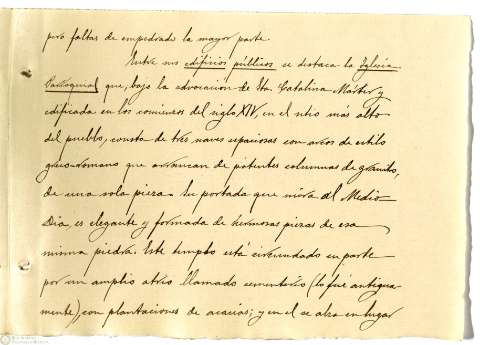 pero faltas de empedrado la mayor parte.
Entre sus edificios públicos se destaca la Iglesia
Parroquial que, bajo la advocación de Sta Catalina Mártir y
edificada en los comienzos del siglo XIV, en el sitio más alto
del pueblo, consta de tres naves espaciosas con arcos de estilo
greco-romano que arrancan de potentes columnas de granito,
de una sola pieza. Su portada que mira al Medio-
Dia, es elegante y formada de hermosas piezas de esa
misma piedra. Este templo está circundado en parte
por un amplio atrio llamado cementerio (lo fué antigua-
mente), con plantaciones de acacias; y en el se alza en lugar